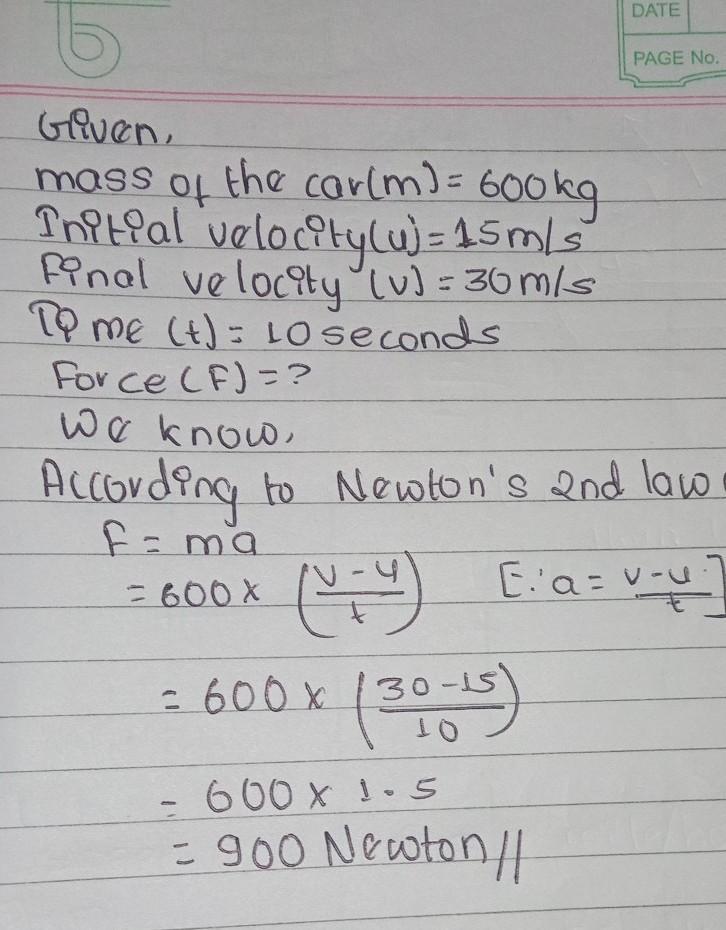 DATE
PAGE No.
Given,
mass of the car(m) = 600kg
Initial velocity(u) = 15m/s
Final velocity (v) = 30m/s
Time (t) = 10 seconds
Force (F) = ?
We know,
According to Newton's 2nd law
F = ma
= 600 × (v-u/t) [∵ a = v-u/t]
= 600 × (30-15/10)
= 600 × 1.5
= 900 Newton//